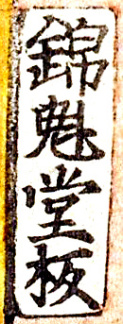 錦魁堂板